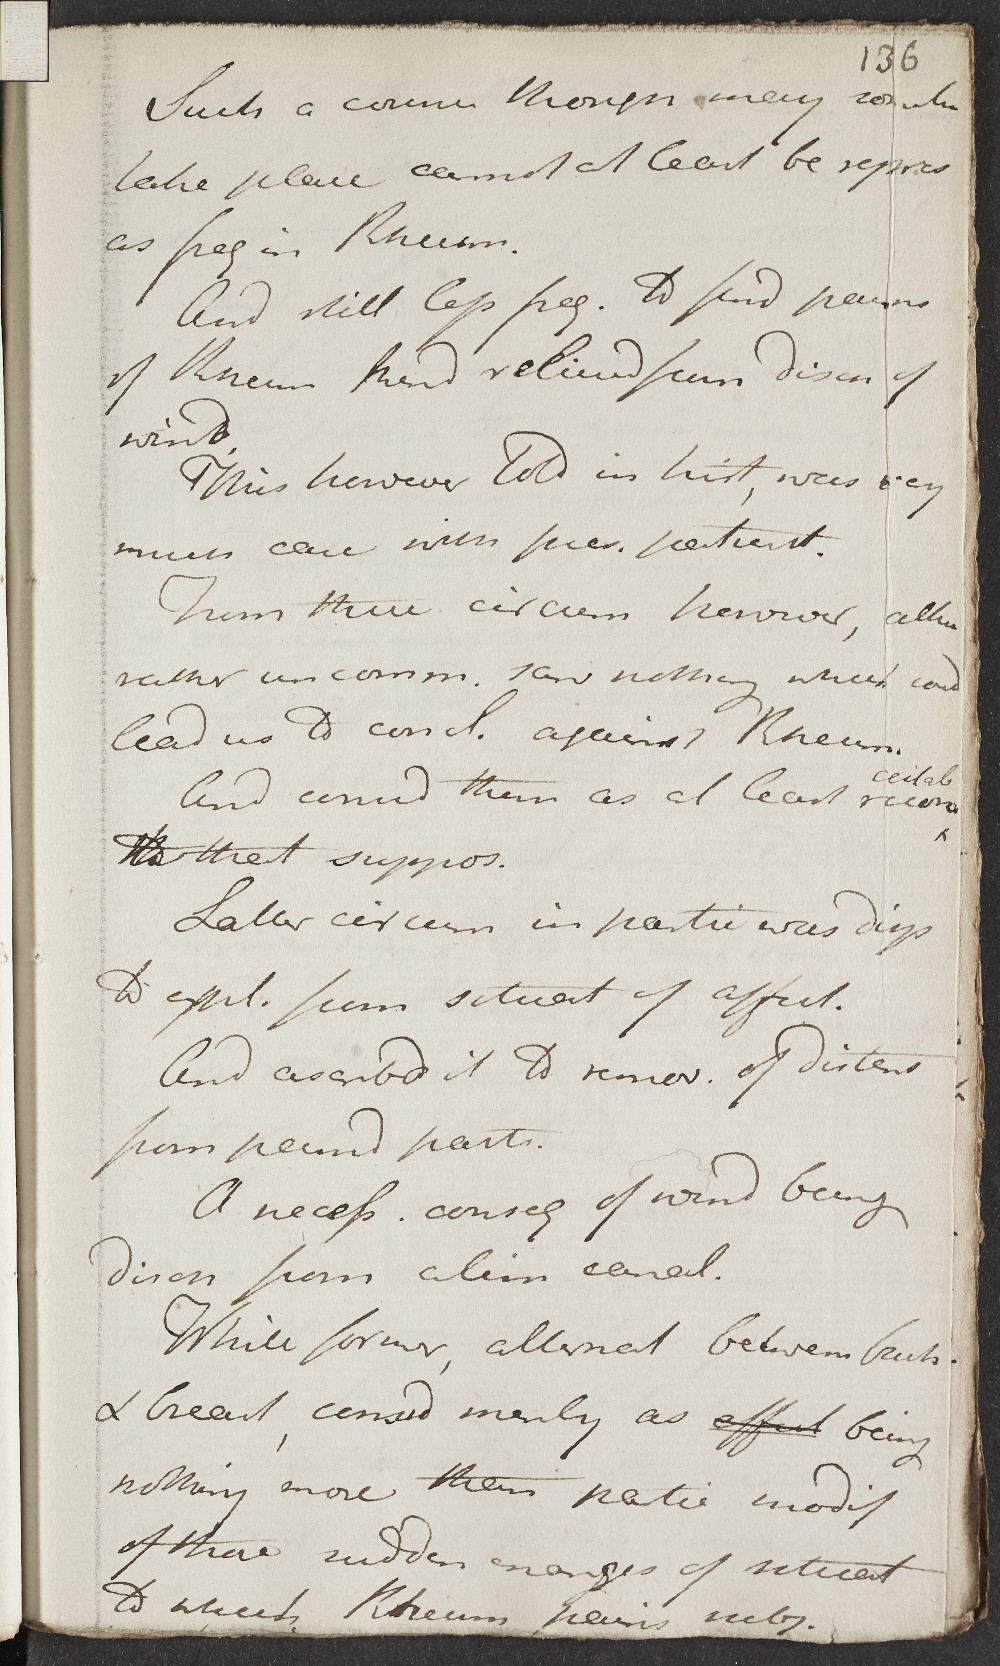 136
Such a course though may somtm
take place cannot at least be repres
as freq in Rheum.
And still less freq. to find pains
of Rheum kind relieved from disch of
wind.
This however told in hist, was very
much case with pres. patient.
From these circum however, altho
rather uncomm. saw nothing which coud
lead us to concl. against Rheum.
And consid them as at least reconcilab
to that suppos.
Latter circum in partic was disp
to expl. from situat of affect.
And ascribd it to remov. of distens
from paind parts.
A necess. conseq of wind being
disch from alim canal.
While former, alternat between back
& breast, consid merely as effect being
nothing more than partic modif
of those sudden changes of situat
to which Rheum pains subj.